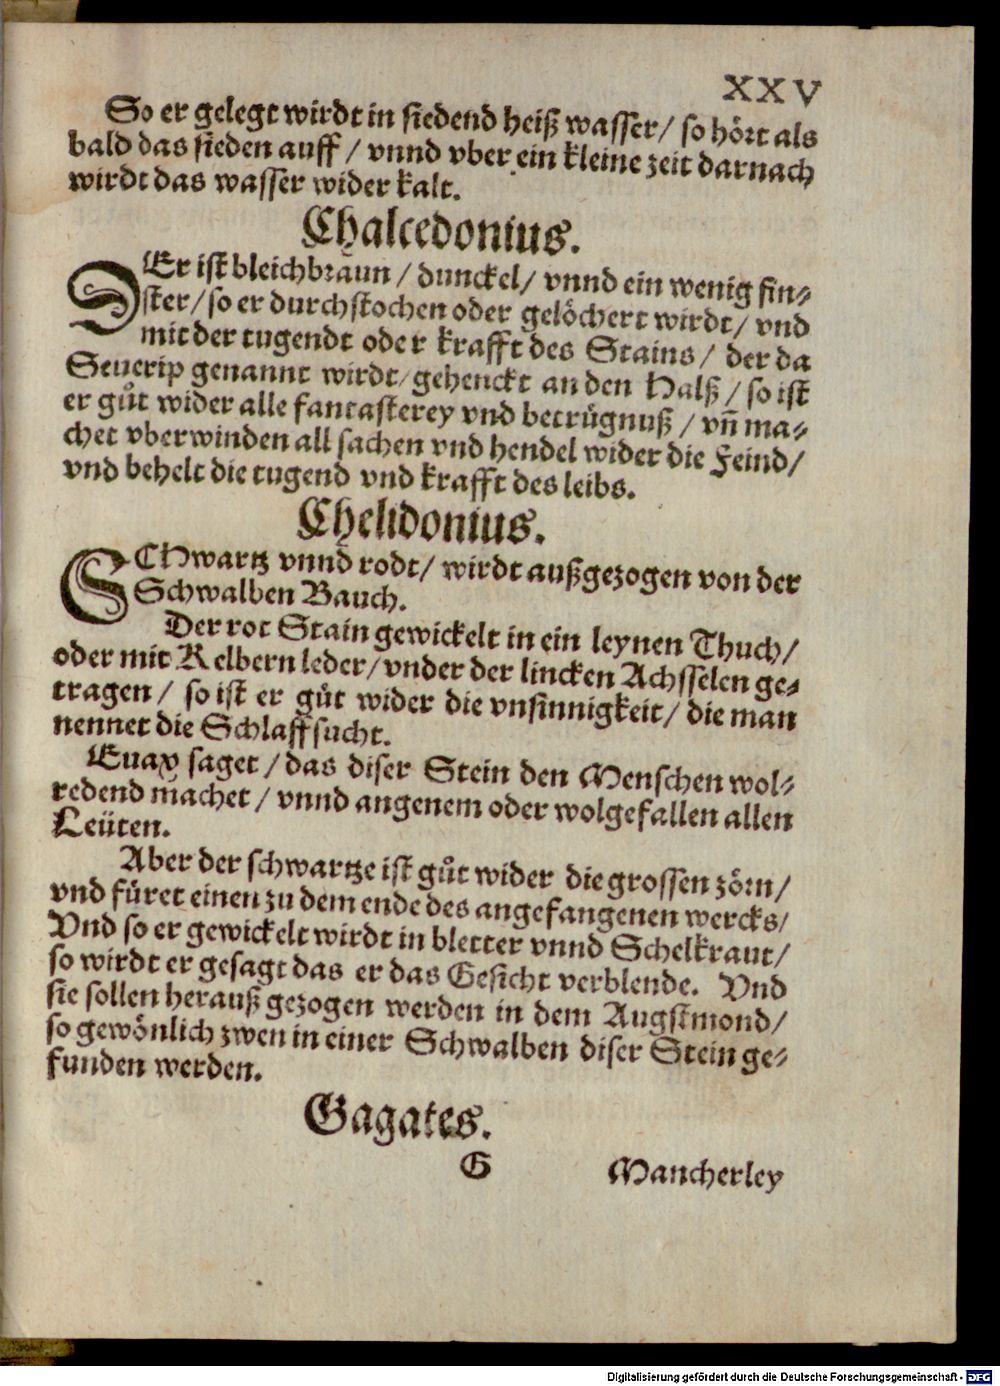 XXV
So er gelegt wirdt in siedend heiß wasser/ so hört als
bald das sieden auff / vnnd vber ein kleine zeit darnach
wirdt das wasser wider kalt.
Chalcedonius.
DEr ist bleichbraun / dunckel/ vnnd ein wenig fin-
ster/ so er durchstochen oder gelöchert wirdt/ vnd
mit der tugendt oder krafft des Stains/ der da
Seuerip genannt wirdt/ gehenckt an den Halß/ so ist
er gůt wider alle fantasterey vnd betrůgnuß / vñ ma-
chet vberwinden all sachen vnd hendel wider die Feind/
vnd behelt die tugend vnd krafft des leibs.
Chelidonius.
SCHwartz vnnd rodt/ wirdt außgezogen von der
Schwalben Bauch.
Der rot Stain gewickelt in ein leynen Thuch/
oder mit Kelbern leder/ vnder der lincken Achsselen ge-
tragen/ so ist er gůt wider die vnsinnigkeit/ die man
nennet die Schlaffsucht.
Euax saget / das diser Stein den Menschen wol-
redend machet / vnnd angenem oder wolgefallen allen
Leüten.
Aber der schwartze ist gůt wider die grossen zörn/
vnd füret einen zu dem ende des angefangenen wercks/
Vnd so er gewickelt wirdt in bletter vnnd Schelkraut/
so wirdt er gesagt das er das Gesicht verblende. Vnd
sie sollen herauß gezogen werden in dem Augstmond/
so gewönlich zwen in einer Schwalben diser Stein ge-
funden werden.
Gagates.
G Mancherley
Digitalisierung gefördert durch die Deutsche Forschungsgemeinschaft - DFG